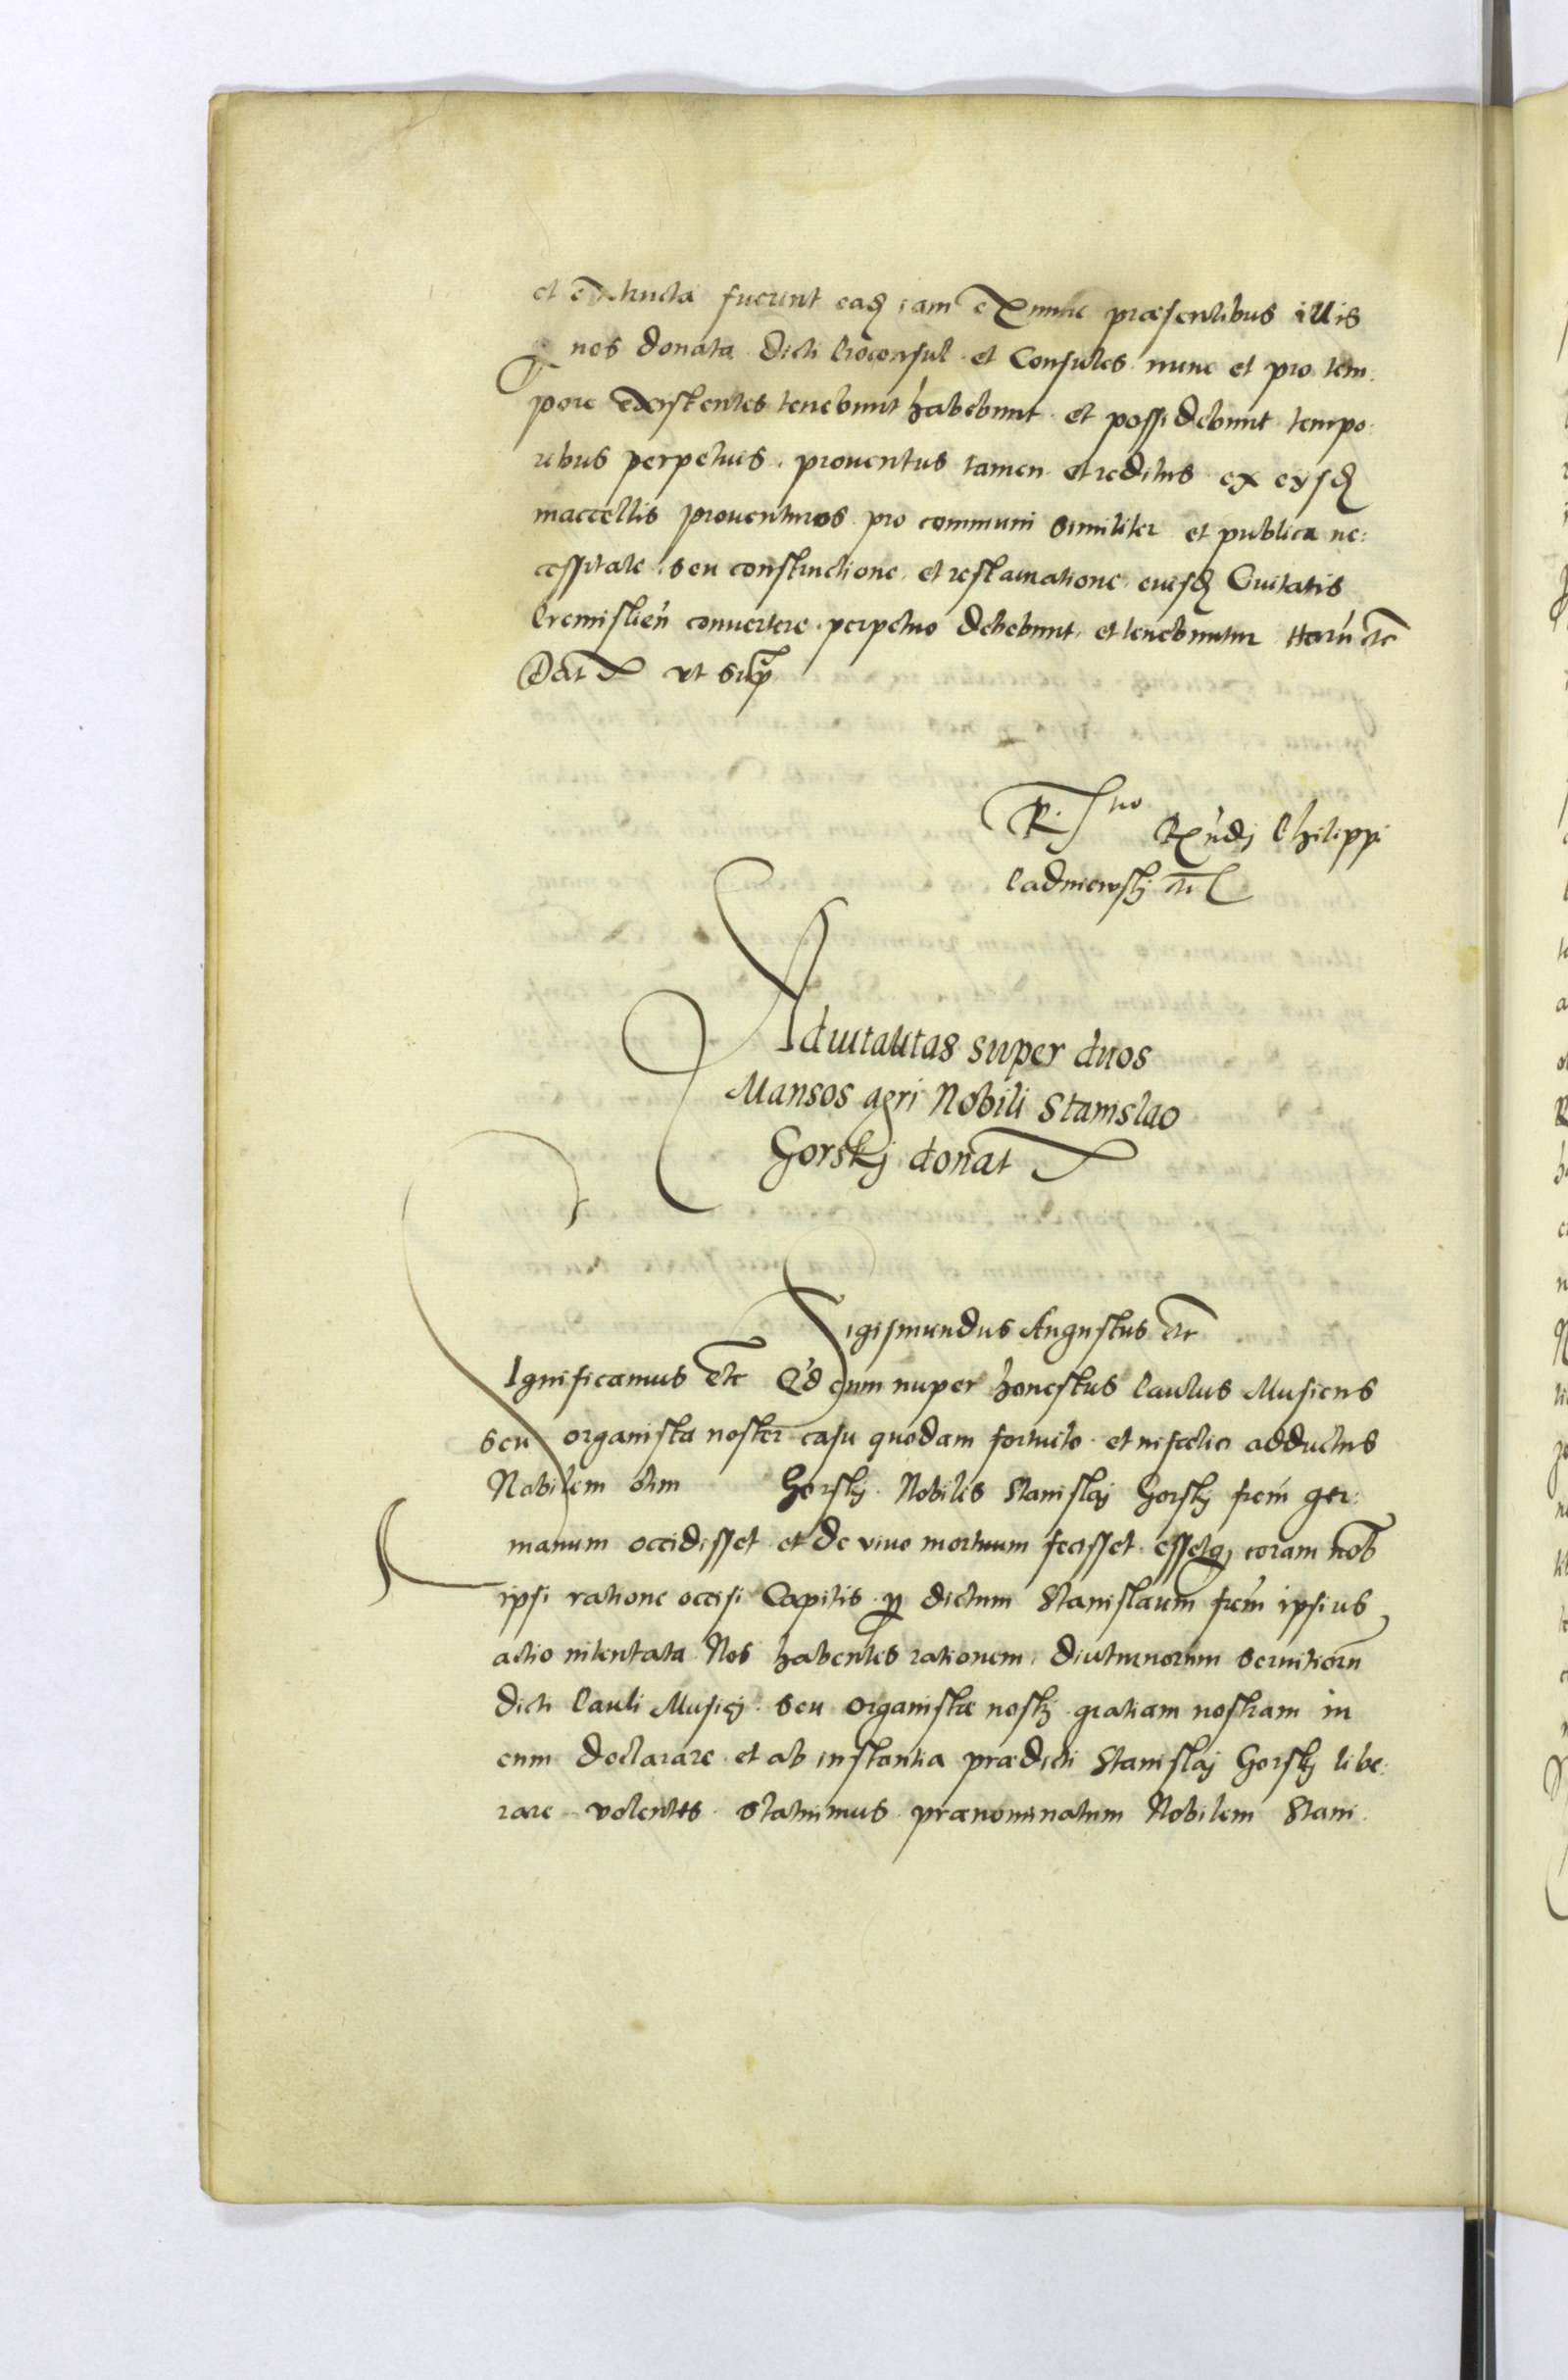 et extructa fuerint eadē iam ex nunc præsentibus illis
p nos donata Dicti Proconsul et Consules nunc et pro tem:
pore existentes tenebunt habebunt et possidebunt tempo:
ribus perpetuis. prouentus tamen et reditus ex eysdē
maccellis prouenturos pro communi similiter et publica ne:
cessitate seu constructione et restauratione eiusdē Ciuitatis
Premislień conuertere perpetuo debebunt et tenebuntur Harū etc
Dat ut supra
R.tio Rxndj Philippi
Padniewskj etc
Aduitalitas super duos
Mansos agri Nobili Stanislao
Gorskj donat
Sigismundus Augustus etc
Significamus etc Qd cum nuper honestus Paulus Musicus
seu organista noster casu quodam fortuito et infœlici adductus
Nobilem olim Gorskj Nobilis Stanislaj Gorskj frem ger:
manum occidisset et de viuo mortuum fecisset essetq coram nob
ipsi ratione occisi Capitis p dictum Stanislaum frem ipsius
actio intentata Nos habentes rationem diuturnorum seruitiorū
dicti Pauli Musicj seu organistæ nostrj gratiam nostram in
eum declarare et ab instantia prædicti Stanislaj Gorskj libe:
rare volentes statuimus prænominatum Nobilem Stani